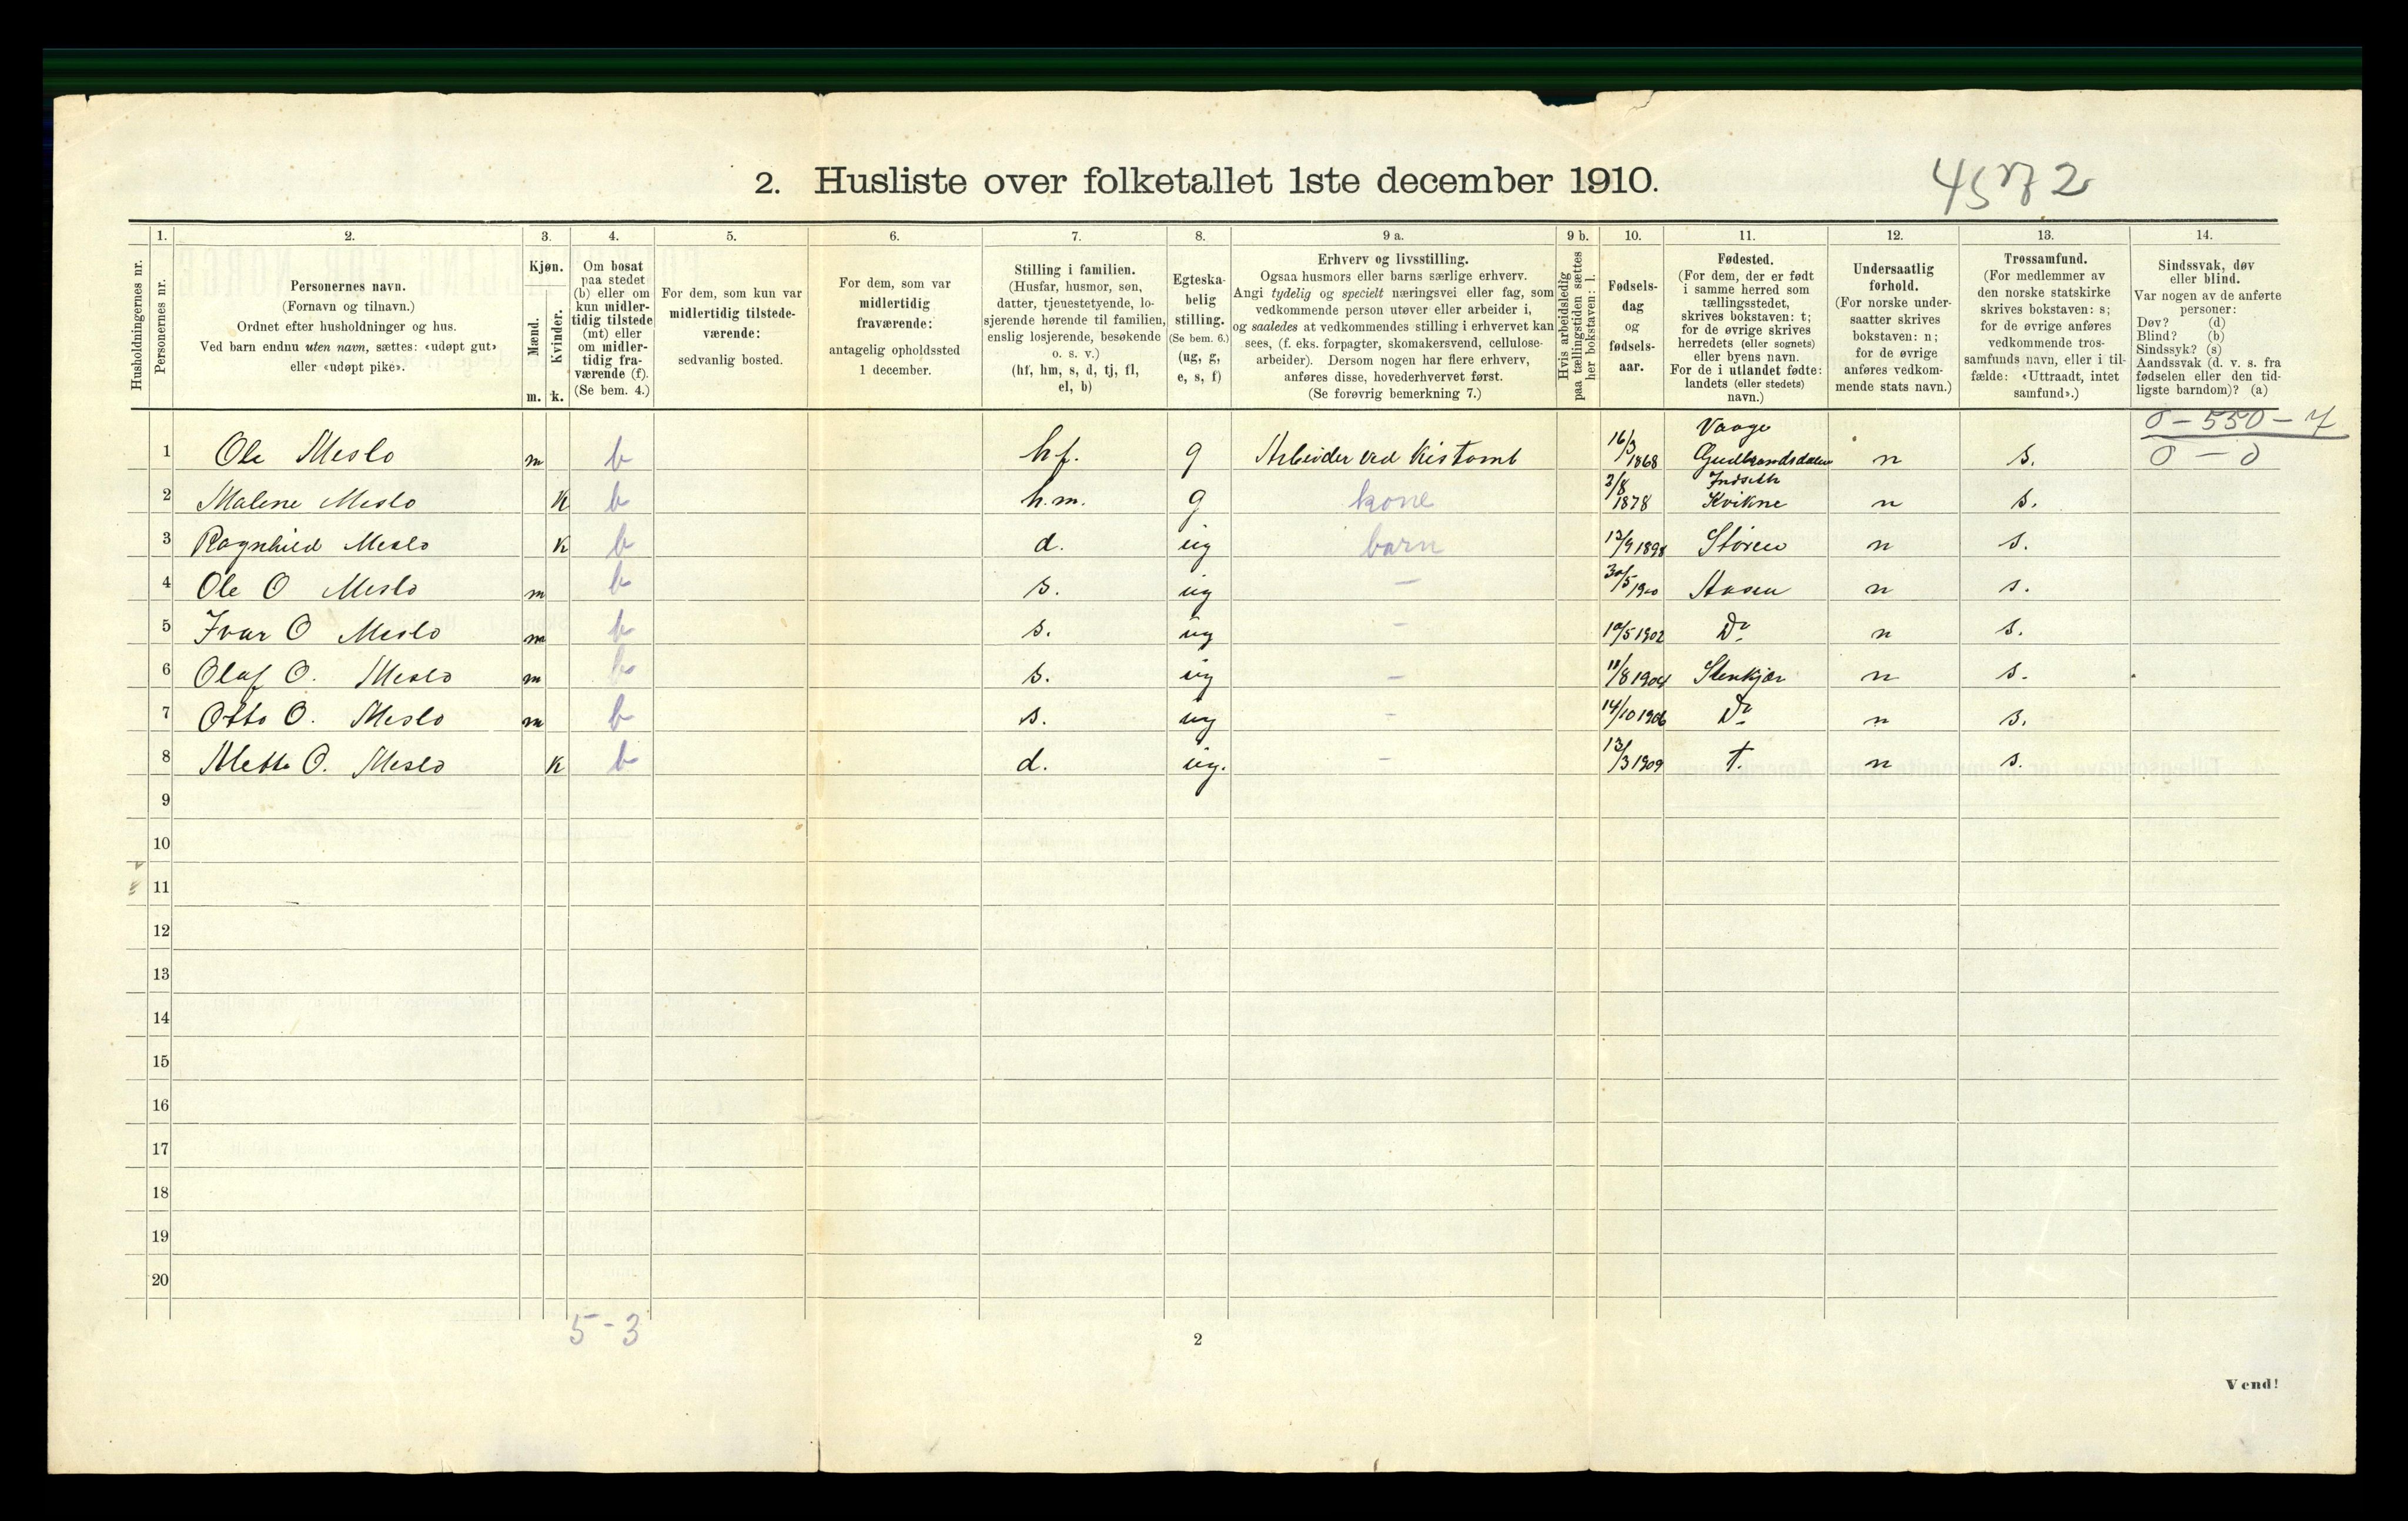 2. Husliste over folketallet 1ste december 1910.
4572
Husholdningernes nr.
1.
Personernes nr.
2.
Personernes navn.
(Fornavn og tilnavn.)
Ordnet efter husholdninger og hus.
Ved barn endnu uten navn, sættes: «udøpt gut»
eller «udøpt pike».
3.
Kjøn.
Mænd.
Kvinder.
m. k.
4.
Om bosat
paa stedet
(b) eller om
kun midler-
tidig tilstede
(mt) eller
om midler-
tidig fra-
værende (f).
(Se bem. 4.)
5.
For dem, som kun var
midlertidig tilstede-
værende:
sedvanlig bosted.
6.
For dem, som var
midlertidig
fraværende:
antagelig opholdssted
1 december.
7.
Stilling i familien.
(Husfar, husmor, søn,
datter, tjenestetyende, lo-
sjerende hørende til familien,
enslig losjerende, besøkende
o. s. v.)
(hf, hm, s, d, tj, fl,
el, b)
8.
Egteska-
belig
stilling.
(Se bem. 6.)
(ug, g,
e, s, f)
9 a.
Erhverv og livsstilling.
Ogsaa husmors eller barns særlige erhverv.
Angi tydelig og specielt næringsvei eller fag, som
vedkommende person utøver eller arbeider i,
og saaledes at vedkommendes stilling i erhvervet kan
sees, (f. eks. forpagter, skomakersvend, cellulose-
arbeider). Dersom nogen har flere erhverv,
anføres disse, hovederhvervet først.
(Se forøvrig bemerkning 7.)
9 b.
Hvis arbeidsledig
paa tællingstiden sættes
her bokstaven: l.
10.
Fødsels-
dag
og
fødsels-
aar.
11.
Fødested.
(For dem, der er født
i samme herred som
tællingsstedet,
skrives bokstaven: t;
for de øvrige skrives
herredets (eller sognets)
eller byens navn.
For de i utlandet fødte:
landets (eller stedets)
navn.)
12.
Undersaatlig
forhold.
(For norske under-
saatter skrives
bokstaven: n;
for de øvrige
anføres vedkom-
mende stats navn.)
13.
Trossamfund.
(For medlemmer av
den norske statskirke
skrives bokstaven: s;
for de øvrige anføres
vedkommende tros-
samfunds navn, eller i til-
fælde: «Uttraadt, intet
samfund».)
14.
Sindssvak, døv
eller blind.
Var nogen av de anførte
personer:
Døv? (d)
Blind? (b)
Sindssyk? (s)
Aandssvak (d. v. s. fra
fødselen eller den tid-
ligste barndom)? (a)
0 - 550 - 7
0 - 0
1 Ole Meslo m b hf. g Arbeider ved Kistomb 16/3 1868 Vaage Gudbrandsdalen n s.
2 Malene Meslo K b h.m. g kone 2/8 1878 Indseth Kvikne n s.
3 Ragnhild Meslo K b d. ug barn 12/9 1898 Støren n s.
4 Ole O Meslo m b s. ug - 30/5 1900 Aasen n s.
5 Ivar O Meslo m b s. ug - 10/5 1902 Do n s.
6 Olaf O. Meslo m b s. ug - 11/8 1904 Stenkjær n s.
7 Otto O. Meslo m b s. ug - 14/10 1906 Do n s.
8 Mette O. Meslo K b d. ug. - 13/3 1909 t. n s.
9
10
11
12
13
14
15
16
17
18
19
20
5 - 3
2
Vend!